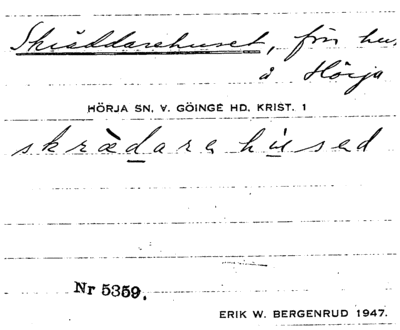 Skräddarehuset, förr hu.
å Hörja
HÖRJA SN. V. GÖINGE HD. KRIST. 1
skrädarehused
Nr 5359.
ERIK W. BERGENRUD 1947.